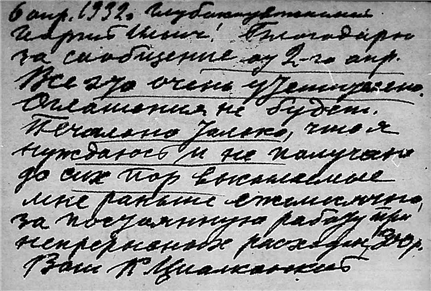 6 апр. 1932г. Глубокоуважаемый
Благодарю
за сообщение от 2-го апр.
Все это очень утешительно.
Оглашения не будет.
Печально только, что я
нуждаюсь и не получаю
до сих пор высылаемые
мне раньше ежемесячно,
за постоянную работу при
непрерывных расходах, 300р.
Ваш К Циолковский